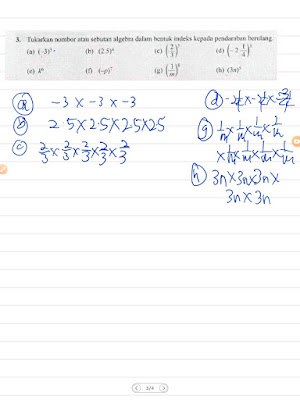 3. Tukarkan nombor atau sebutan algebra dalam bentuk indeks kepada pendaraban berulang.
(a) (-3)³ (b) (2.5)⁴ (c) (2/3)⁵ (d) (-2 1/4)³
(e) k⁶ (f) (-p)⁷ (g) (1/m)⁸ (h) (3n)⁵
(a) -3 x -3 x -3
(b) 2.5 x 2.5 x 2.5 x 2.5
(c) 2/3 x 2/3 x 2/3 x 2/3 x 2/3
(d)
(g) 1/m x 1/m x 1/m x 1/m
x 1/m x 1/m x 1/m x 1/m
(h) 3n x 3n x 3n x
3n x 3n
3/4